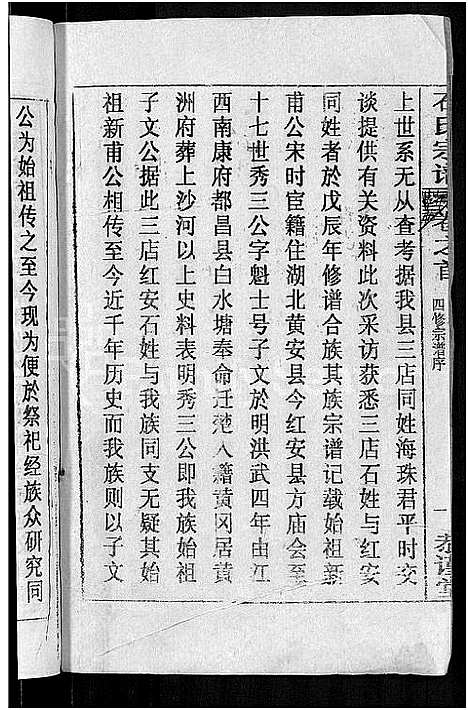 石氏宗谱
卷之首
四修宗谱序
一
恭谨堂
上世系无从查考据我县三店同姓海珠君平时交
谈提供有关资料此次采访获悉三店石姓与红安
同姓者於戊辰年修谱合族其族宗谱记载始祖新
甫公宋时宦籍住湖北黄安县今红安县方庙会至
十七世秀三公字魁士号子文於明洪武四年由江
西南康府都昌县白水塘奉命迁楚入籍黄冈居黄
洲府葬上沙河以上史料表明秀三公即我族始祖
子文公据此三店红安石姓与我族同支无疑其始
祖新甫公相传至今近千年历史而我族则以子文
公为始祖传之至今现为便於祭祀经族众研究同